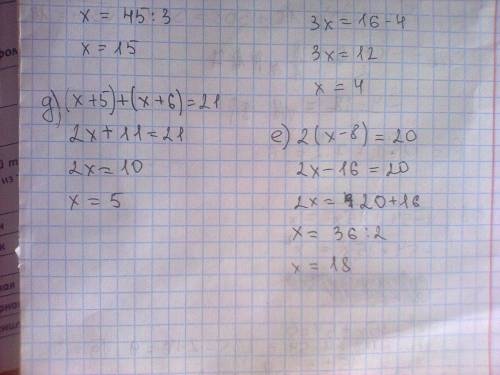 x = 45:3
x = 15
д) (x+5)+(x+6)=21
2x+11=21
2x=10
x = 5
3x=16-4
3x=12
x = 4
е) 2(x-8)=20
2x-16=20
2x= 20+16
x= 36:2
x = 18